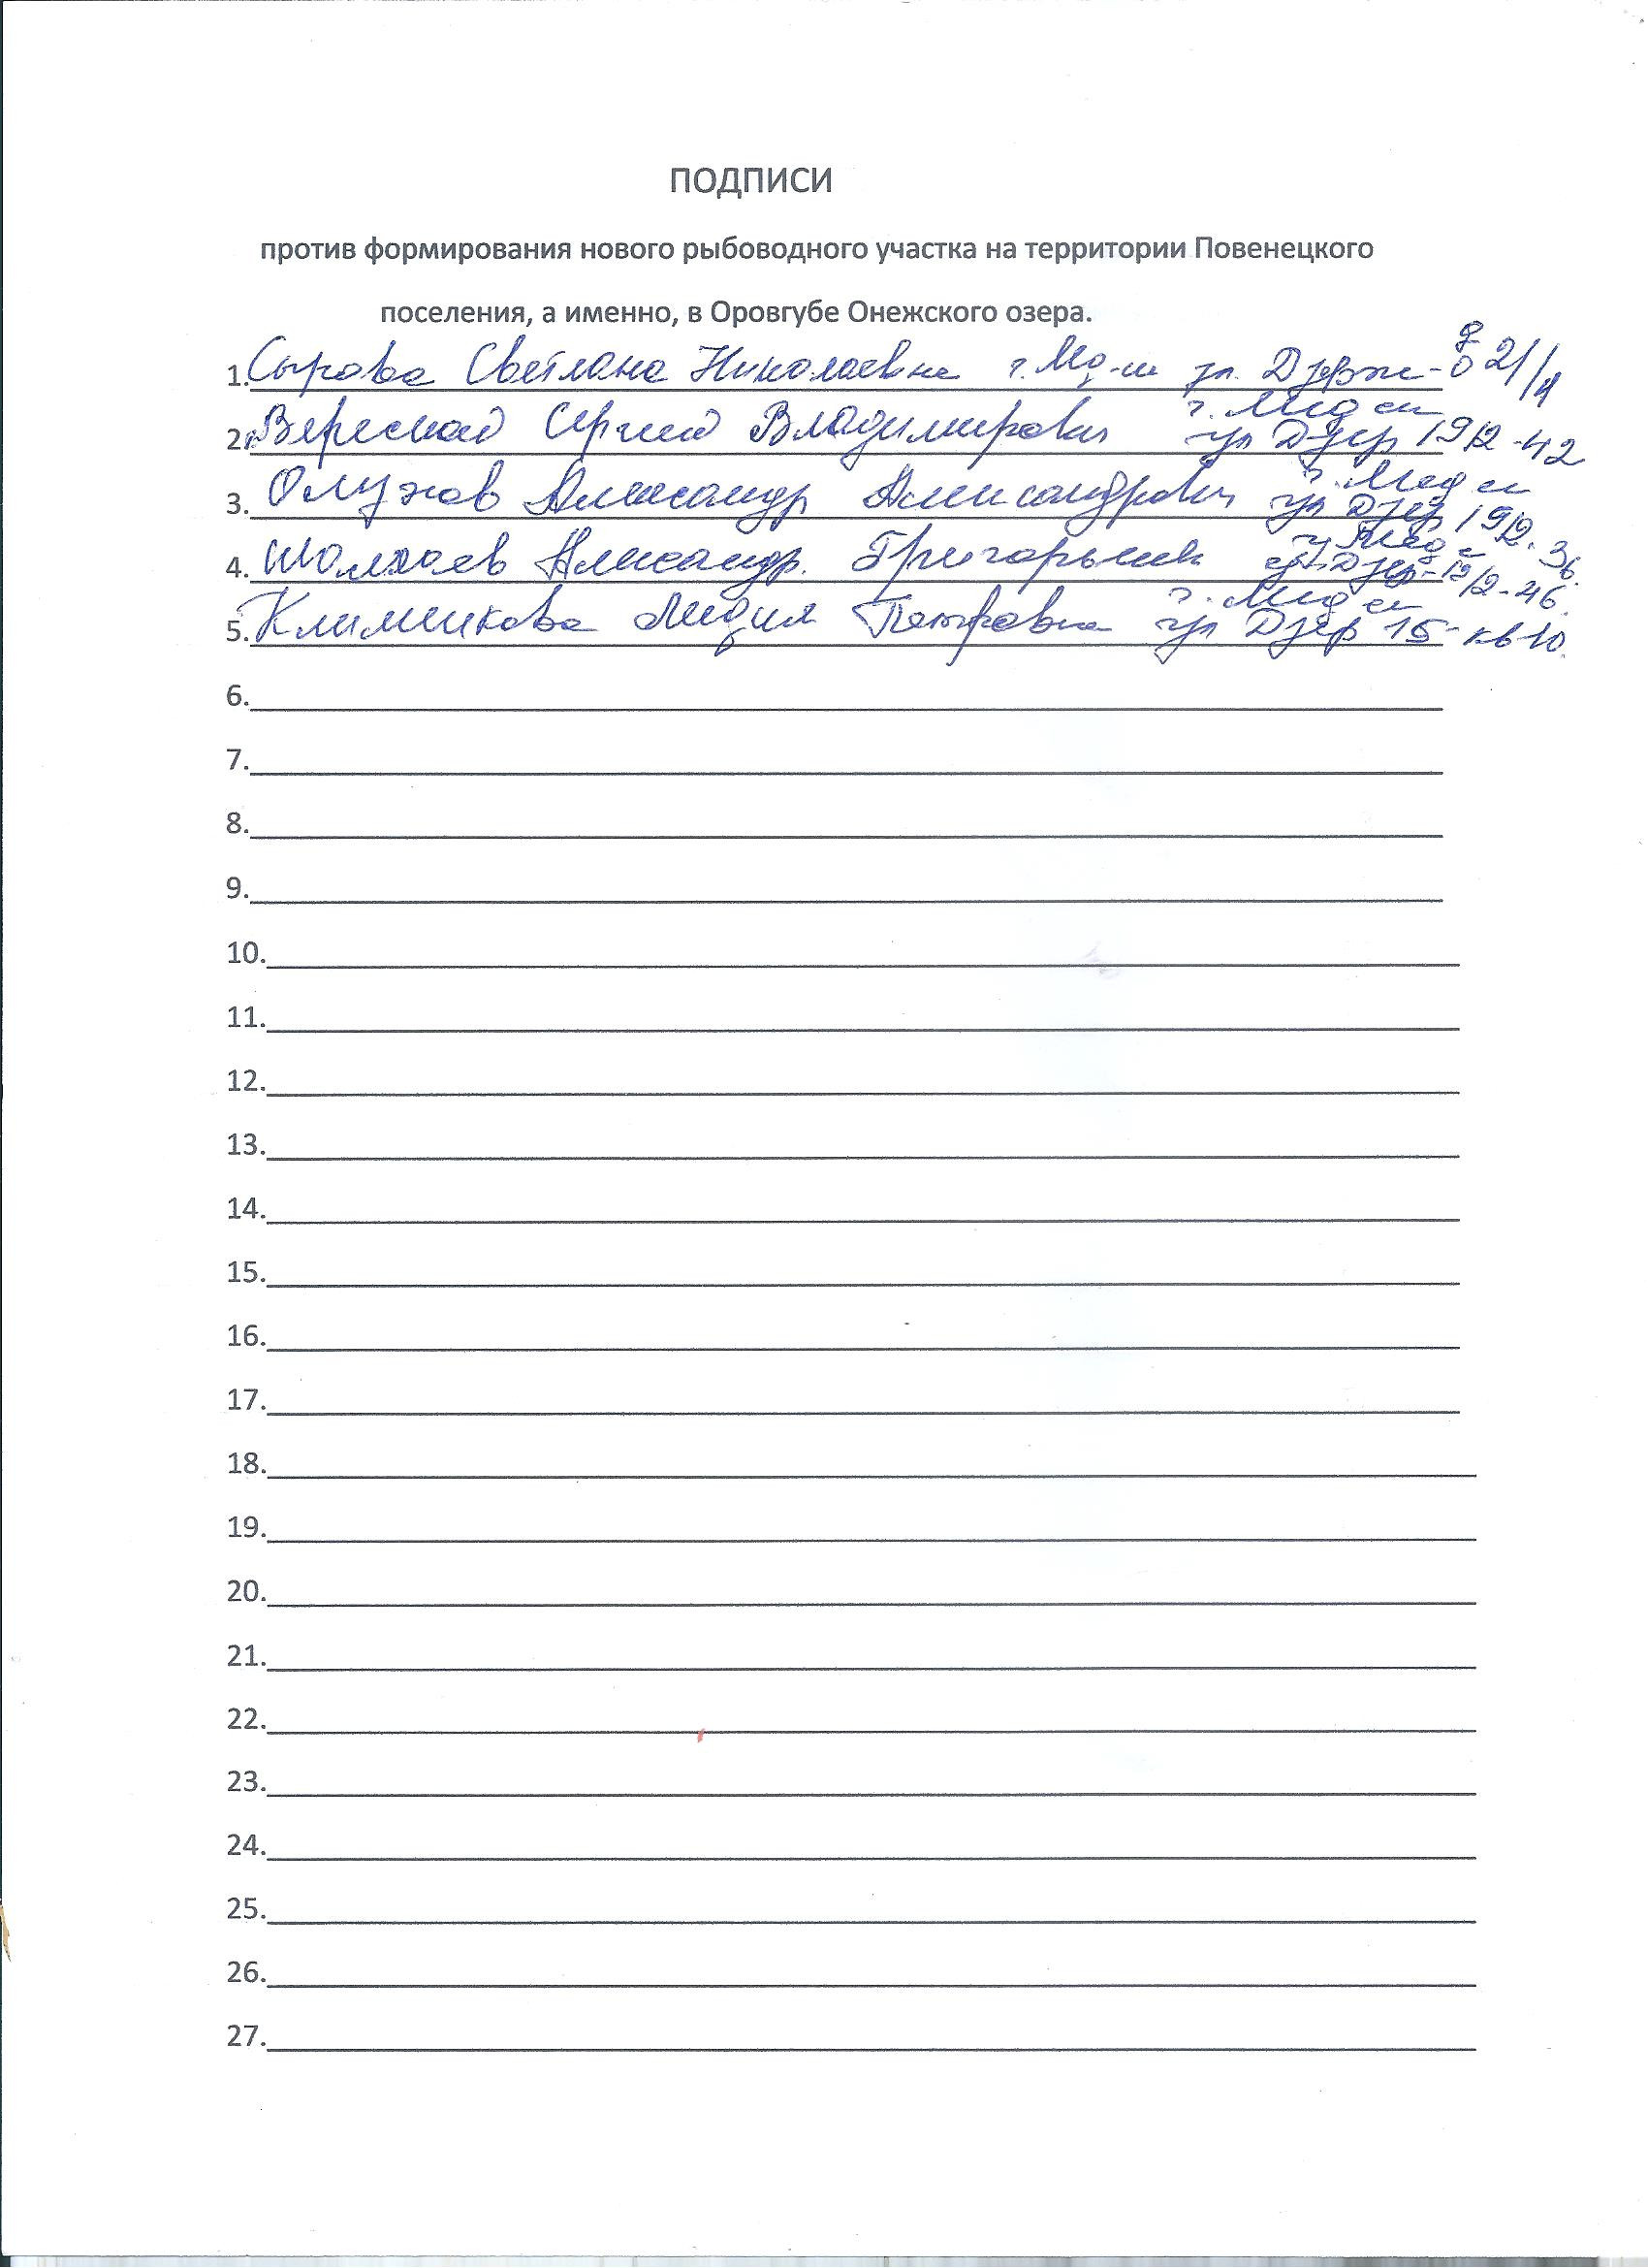 ПОДПИСИ
против формирования нового рыбоводного участка на территории Повенецкого
поселения, а именно, в Оровгубе Онежского озера.
1. Сырова Светлана Николаевна г. ул. 21/
2. Сергей Владимирович г. Мед ул Дзер 19/2-42
3. Александр Александрович г. Мед ул Дзер 19/2-36.
4. Александр Григорьевич Дзер-12/2-46.
5. Лидия Петровна г. Мед ул Дзер 15-кв 10.
6.
7.
8.
9.
10.
11.
12.
13.
14.
15.
16.
17.
18.
19.
20.
21.
22.
23.
24.
25.
26.
27.